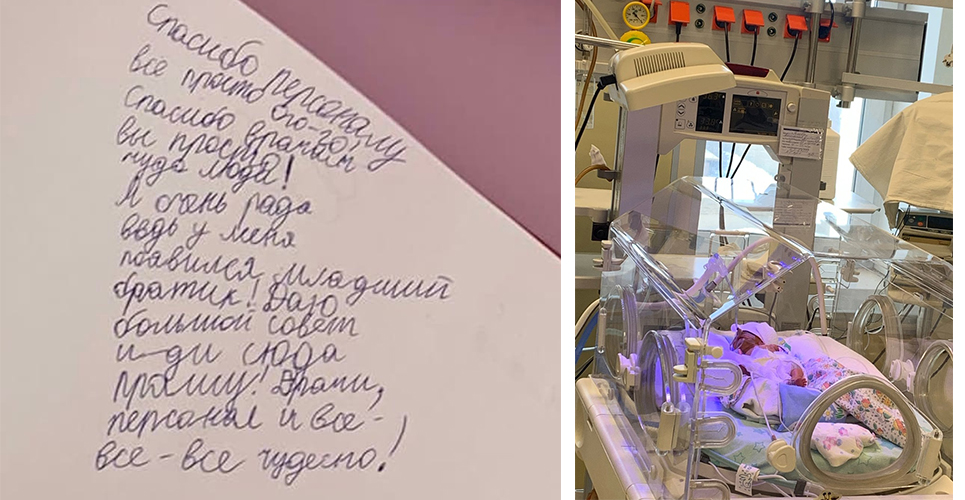 Спасибо персоналу
все просто ого-го!
Спасибо врачам
вы просто
чудо люди!
Я очень рада
ведь у меня
появился младший
братик! Даю
большой совет
и-ди сюда
прошу! Врачи,
персонал и все-
все-все чудесно!